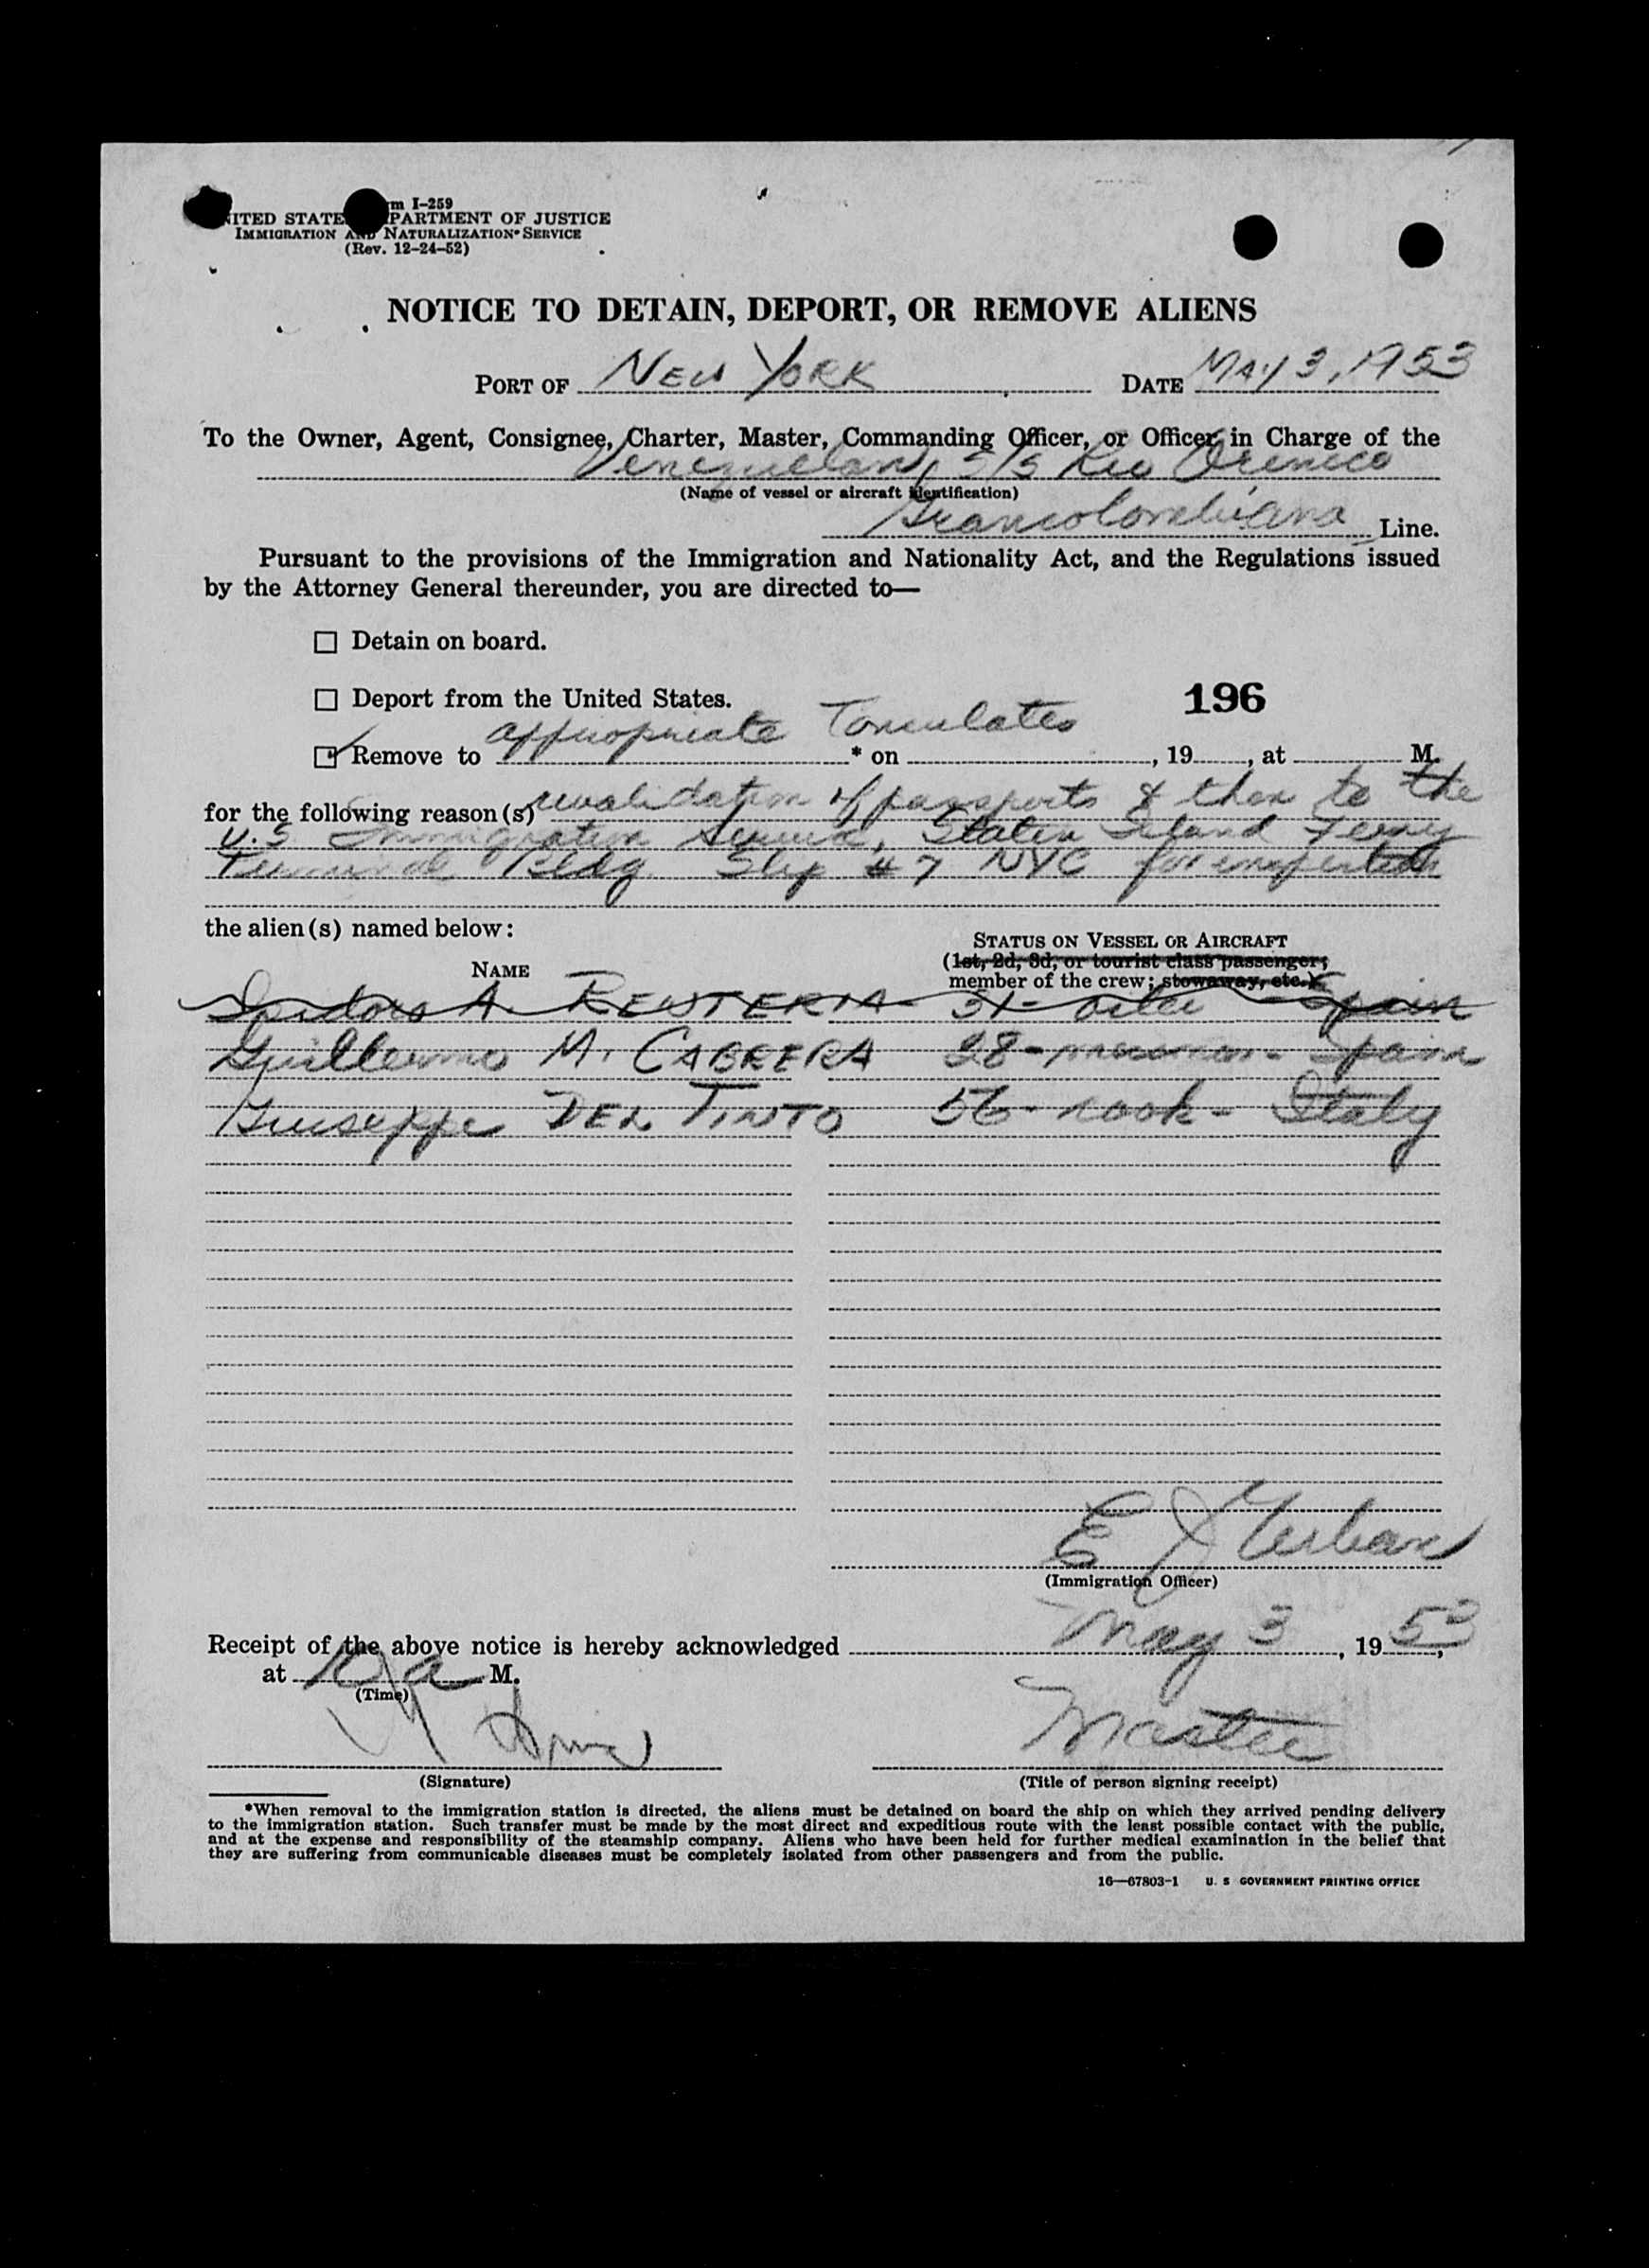 m I-259
ITED STATE PARTMENT OF JUSTICE
IMMIGRATION AND NATURALIZATION SERVICE
(Rev. 12-24-52)
NOTICE TO DETAIN, DEPORT, OR REMOVE ALIENS
PORT OF NEW YORK DATE MAY 3, 1953
To the Owner, Agent, Consignee, Charter, Master, Commanding Officer, or Officer in Charge of the
Venezuelan S/S Rio Orinoco
(Name of vessel or aircraft identification)
Grancolombiana Line.
Pursuant to the provisions of the Immigration and Nationality Act, and the Regulations issued
by the Attorney General thereunder, you are directed to—
☐ Detain on board.
☐ Deport from the United States. 196
☑ Remove to appropriate Consulates * on , 19 , at M.
for the following reason(s) revalidation of passports & then to the
U.S Immigration Service, Staten Island Ferry
Terminal Bldg Slip #7 NYC for inspection
the alien(s) named below:
STATUS ON VESSEL OR AIRCRAFT
(1st, 2d, 3d, or tourist class passenger;
NAME
member of the crew; stowaway, etc.)
Isidoro A. RENTERIA 51- oiler - Spain
Guillermo M. CABRERA 28- messman - Spain
Giuseppe DEL TINTO 56- cook - Italy
E J Urban
(Immigration Officer)
Receipt of the above notice is hereby acknowledged May 3, 1953,
at 10 a M.
(Time)
Master
(Signature) (Title of person signing receipt)
*When removal to the immigration station is directed, the aliens must be detained on board the ship on which they arrived pending delivery
to the immigration station. Such transfer must be made by the most direct and expeditious route with the least possible contact with the public,
and at the expense and responsibility of the steamship company. Aliens who have been held for further medical examination in the belief that
they are suffering from communicable diseases must be completely isolated from other passengers and from the public.
16—67803-1 U. S GOVERNMENT PRINTING OFFICE